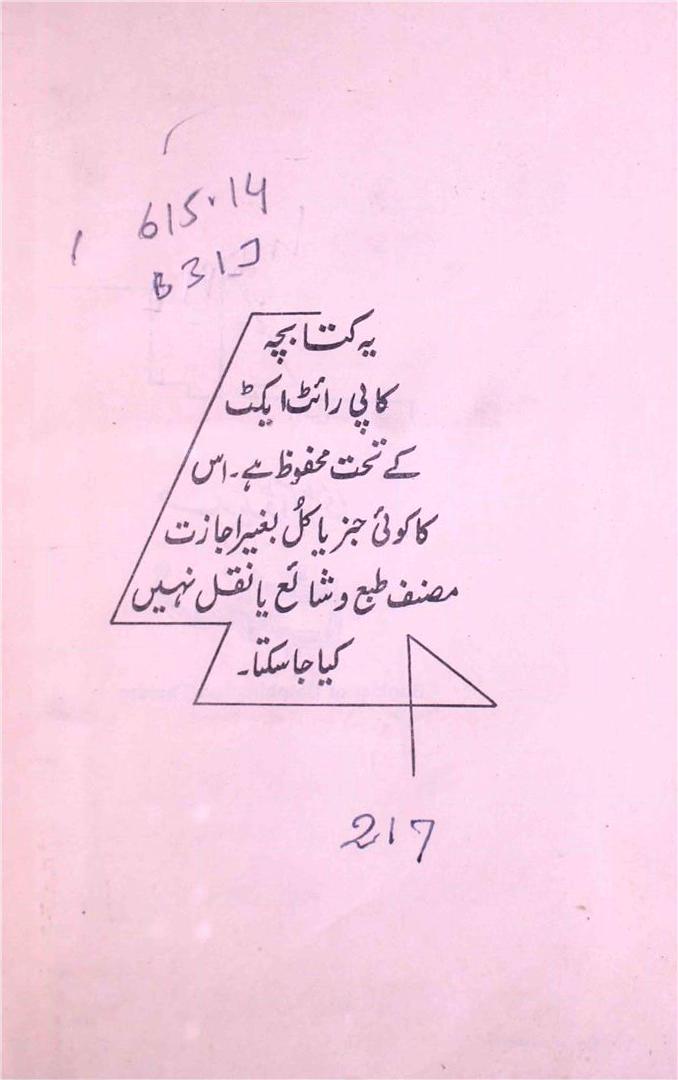 615.14
B31J
یہ کتابچہ
کاپی رائٹ ایکٹ
کے تحت محفوظ ہے۔ اس
کا کوئی جز یا کُل بغیر اجازت
مصنف طبع و شائع یا نقل نہیں
کیا جا سکتا۔
217